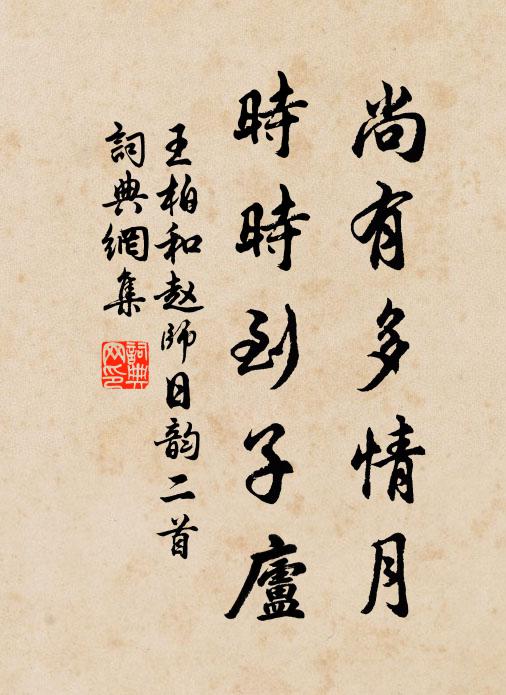 尚有多情月
時時到子廬
王柏和赵師日韵二首
詞典網集
詞典网印